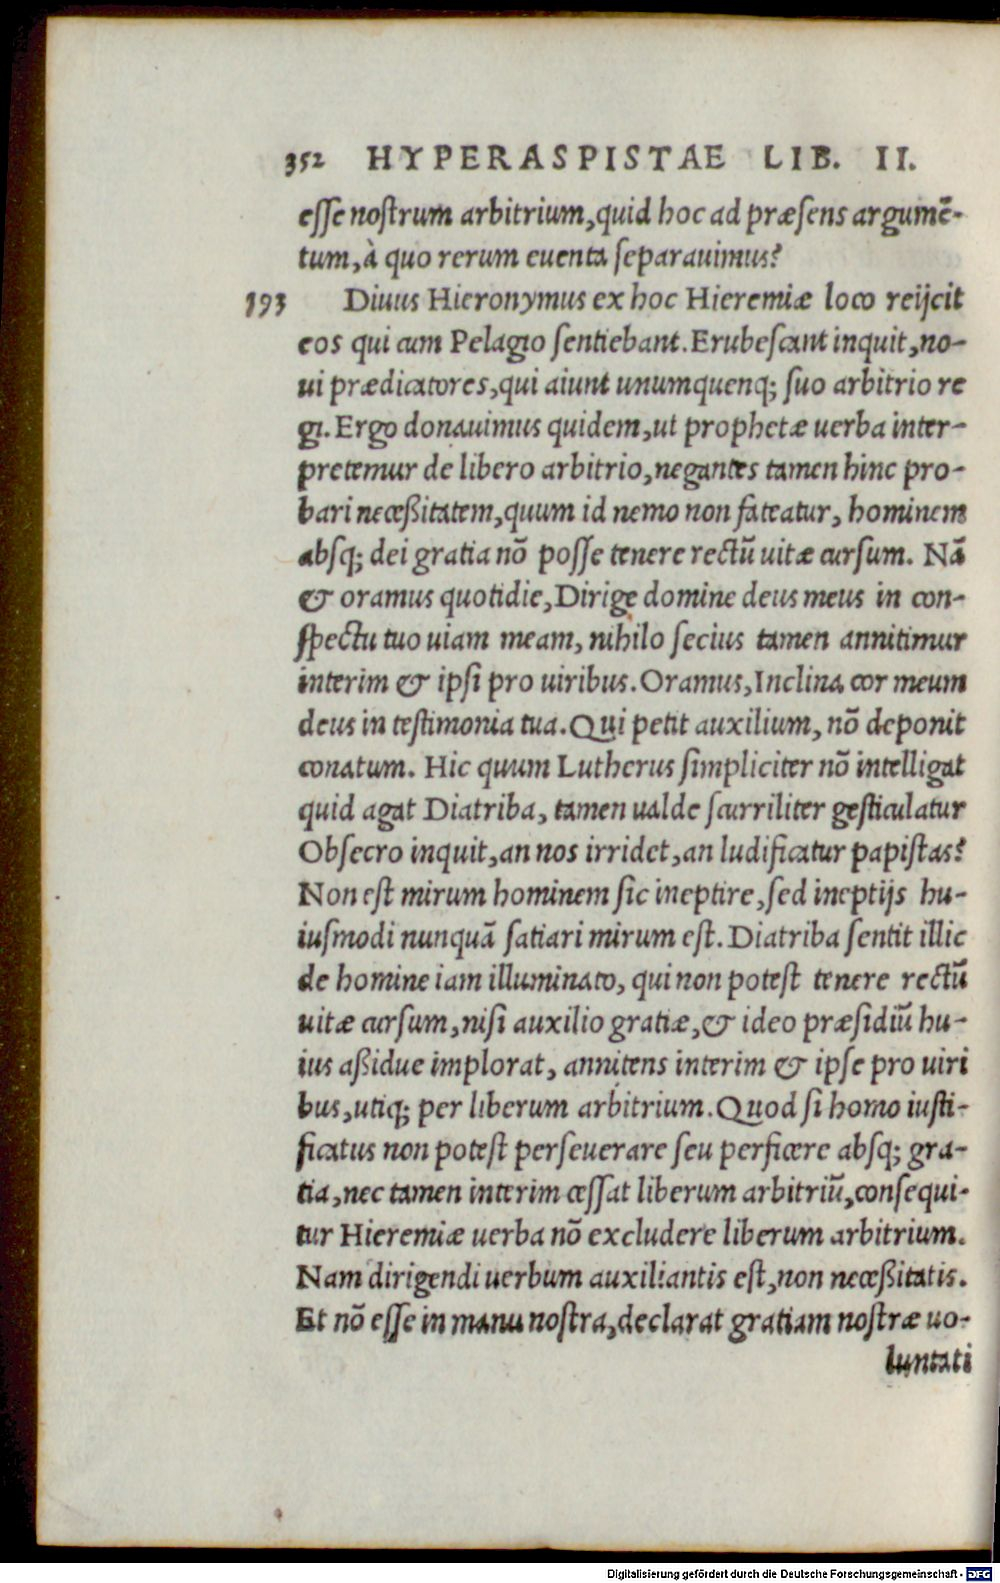 352 HYPERASPISTAE LIB. II.
esse nostrum arbitrium, quid hoc ad præsens argumẽ-
tum, à quo rerum euenta separauimus?
193 Diuus Hieronymus ex hoc Hieremiæ loco reijcit
eos qui cum Pelagio sentiebant. Erubescant inquit, no-
ui prædicatores, qui aiunt unumquenq; suo arbitrio re
gi. Ergo donauimus quidem, ut prophetæ uerba inter-
pretemur de libero arbitrio, negantes tamen hinc pro-
bari neceßitatem, quum id nemo non fateatur, hominem
absq; dei gratia nõ posse tenere rectũ uitæ cursum. Nã
& oramus quotidie, Dirige domine deus meus in con-
spectu tuo uiam meam, nihilo secius tamen annitimur
interim & ipsi pro uiribus. Oramus, Inclina cor meum
deus in testimonia tua. Qui petit auxilium, nõ deponit
conatum. Hic quum Lutherus simpliciter nõ intelligat
quid agat Diatriba, tamen ualde scurriliter gesticulatur
Obsecro inquit, an nos irridet, an ludificatur papistas?
Non est mirum hominem sic ineptire, sed ineptijs hu-
iusmodi nunquã satiari mirum est. Diatriba sentit illic
de homine iam illuminato, qui non potest tenere rectũ
uitæ cursum, nisi auxilio gratiæ, & ideo præsidiũ hu-
ius aßidue implorat, annitens interim & ipse pro uiri
bus, utiq; per liberum arbitrium. Quod si homo iusti-
ficatus non potest perseuerare seu perficere absq; gra-
tia, nec tamen interim cessat liberum arbitriũ, consequi-
tur Hieremiæ uerba nõ excludere liberum arbitrium.
Nam dirigendi uerbum auxiliantis est, non neceßitatis.
Et nõ esse in manu nostra, declarat gratiam nostræ uo-
luntati
Digitalisierung gefördert durch die Deutsche Forschungsgemeinschaft - DFG